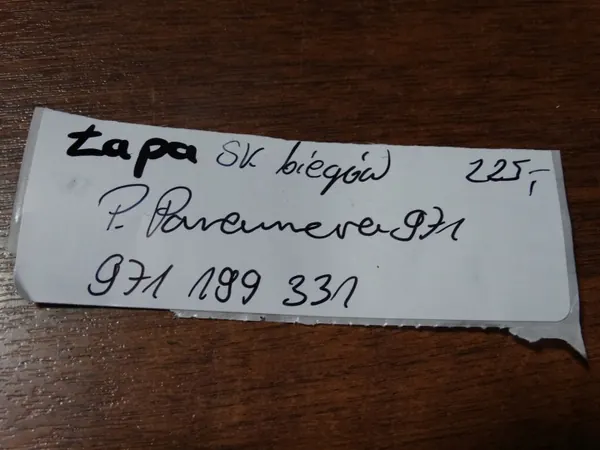 Łapa SK biegów 225,-
P. Panamera 971
971 199 331